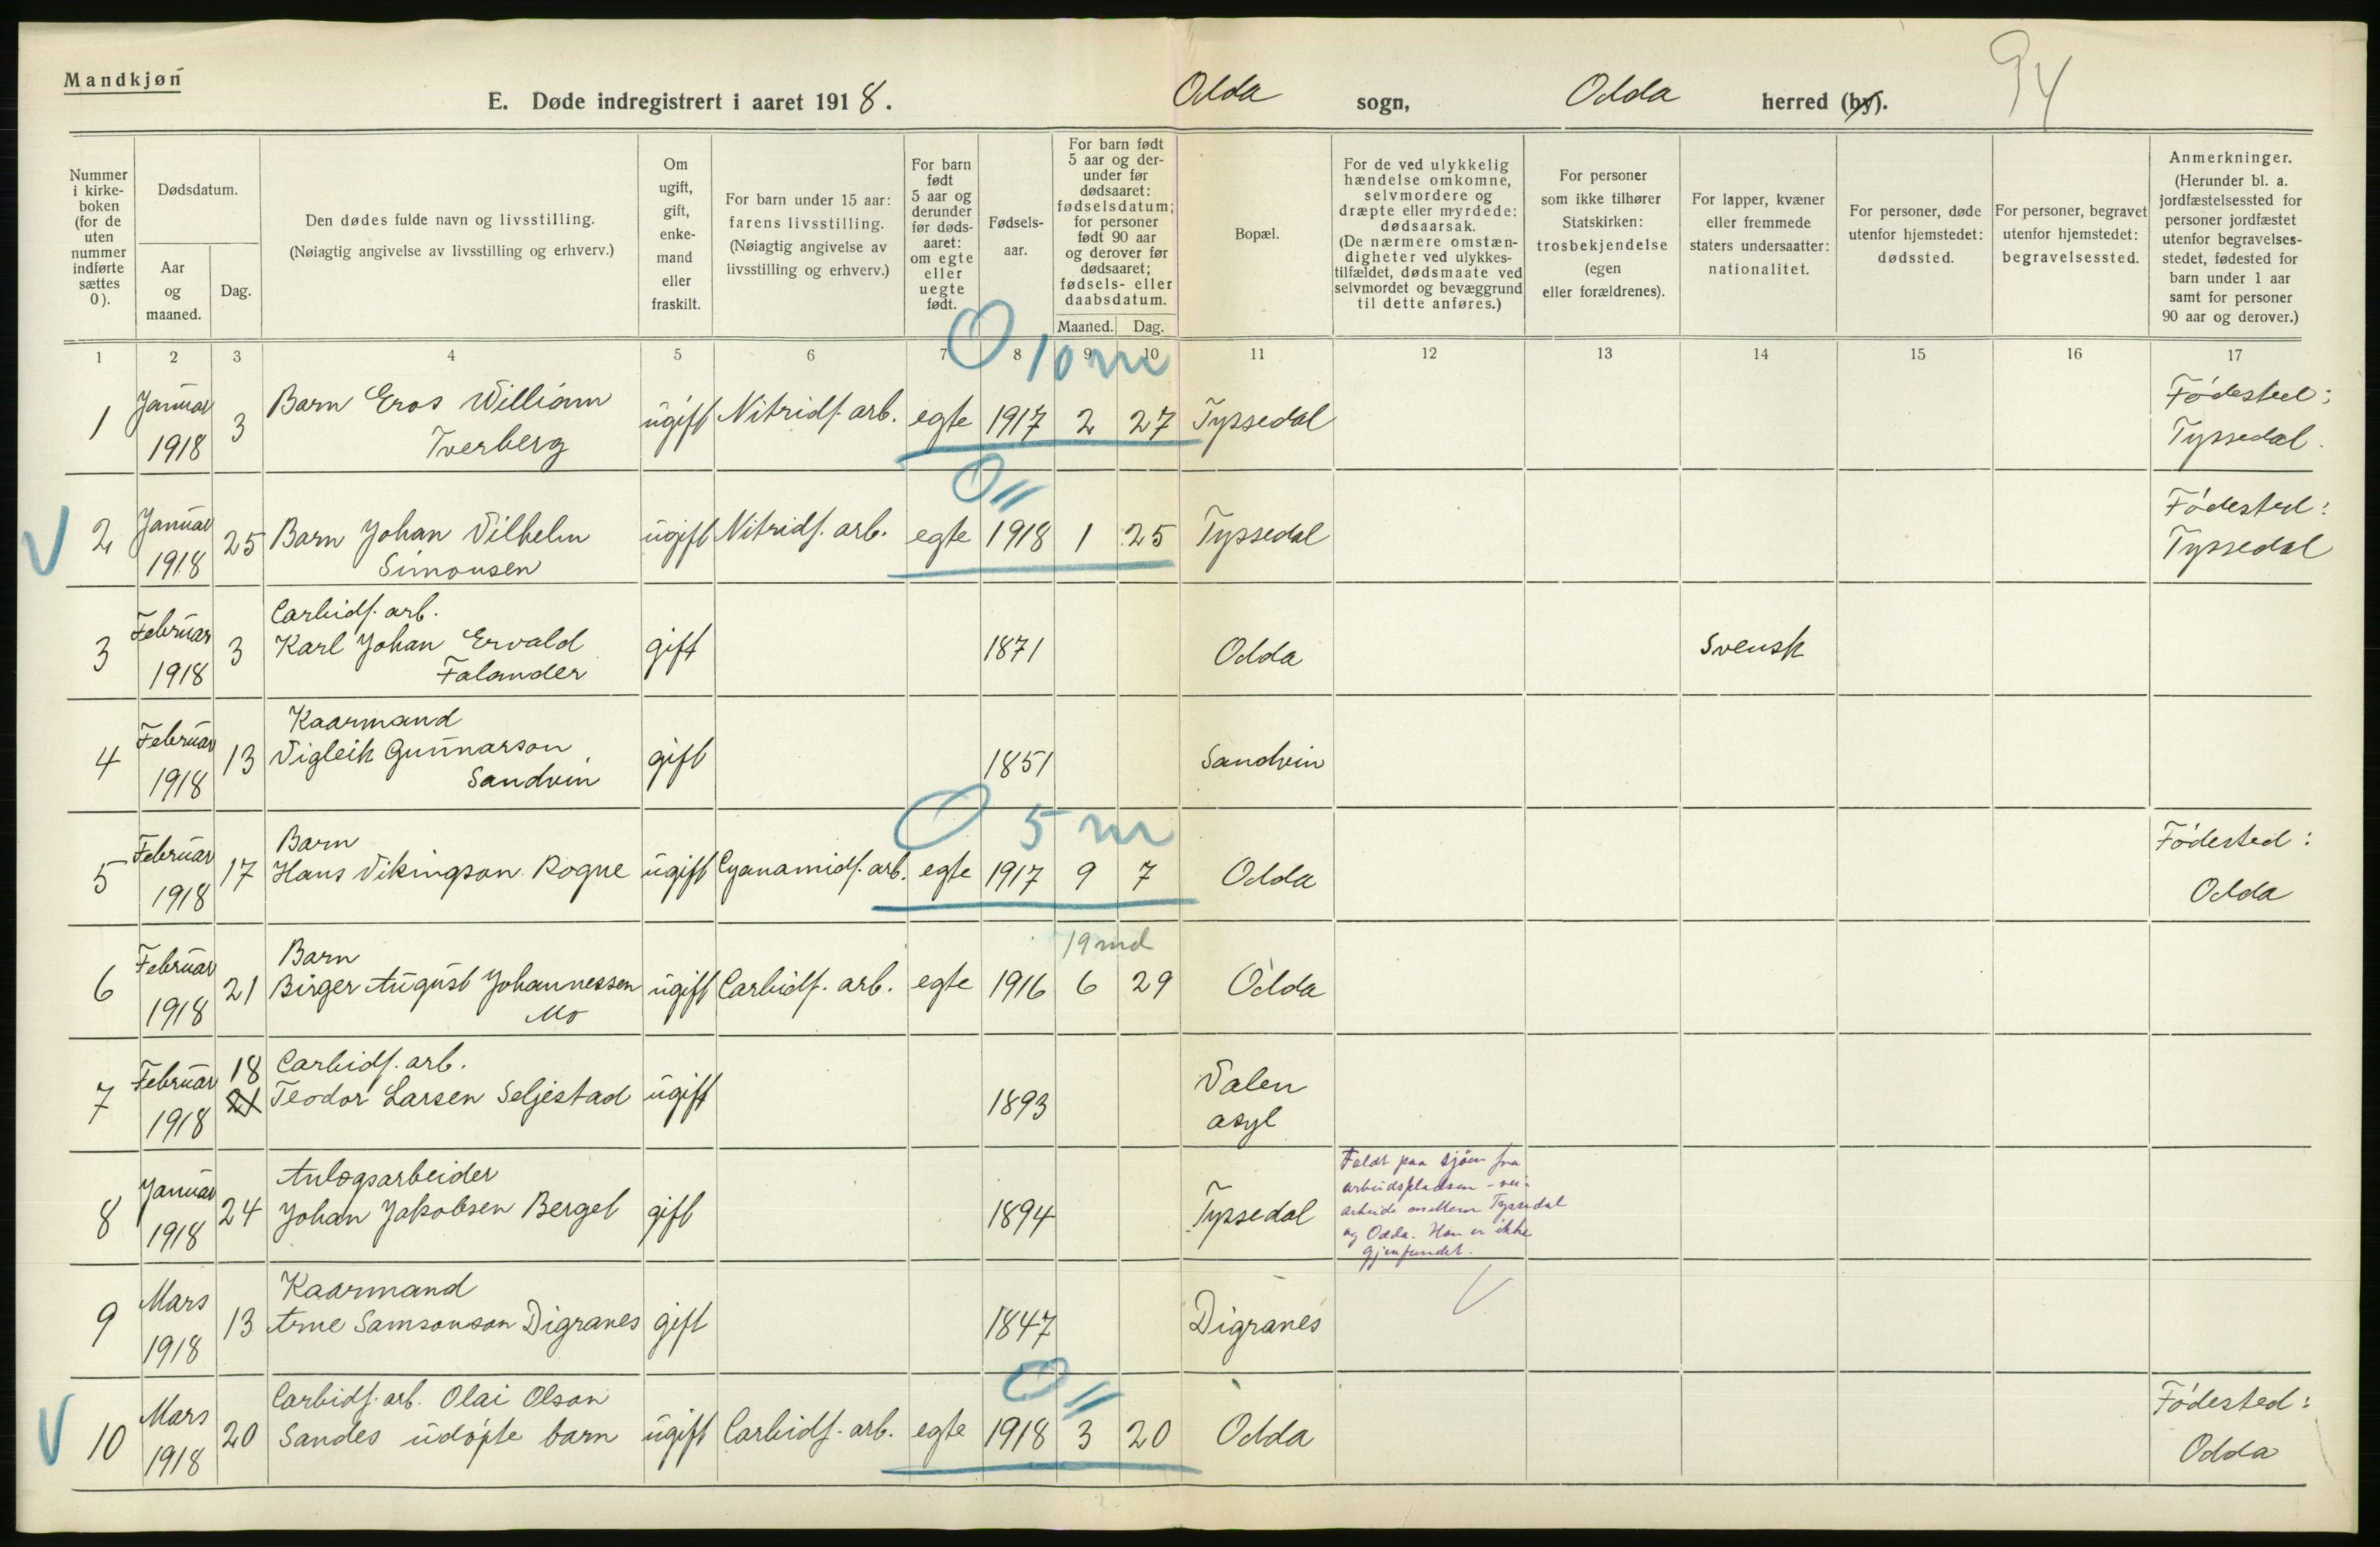 Mandkjøn
E. Døde indregistrert i aaret 1918. Odda sogn, Odda herred (by).
94
Nummer i kirkeboken (for de uten nummer indførte sættes 0).
Dødsdatum.
Aar og maaned.
Dag.
Den dødes fulde navn og livsstilling.
(Nøiagtig angivelse av livsstilling og erhverv.)
Om ugift, gift, enkemand eller fraskilt.
For barn under 15 aar: farens livsstilling.
(Nøiagtig angivelse av livsstilling og erhverv.)
For barn født 5 aar og derunder før dødsaaret: om egte eller uegte født.
Fødselsaar.
For barn født 5 aar og derunder før dødsaaret: fødselsdatum; for personer født 90 aar og derover før dødsaaret; fødsels- eller daabsdatum.
Maaned. Dag.
Bopæl.
For de ved ulykkelig hændelse omkomne, selvmordere og dræpte eller myrdede: dødsaarsak.
(De nærmere omstændigheter ved ulykkestilfældet, dødsmaate ved selvmordet og bevæggrund til dette anføres.)
For personer som ikke tilhører Statskirken: trosbekjendelse (egen eller forældrenes).
For lapper, kvæner eller fremmede staters undersaatter: nationalitet.
For personer, døde utenfor hjemstedet: dødssted.
For personer, begravet utenfor hjemstedet: begravelsessted.
Anmerkninger.
(Herunder bl. a. jordfæstelsessted for personer jordfæstet utenfor begravelsesstedet, fødested for barn under 1 aar samt for personer 90 aar og derover.)
1 2 3 4 5 6 7 8 9 10 11 12 13 14 15 16 17
0 10 m
1 Januar 1918 3 Barn Eros William Tverberg ugift Nitridf. arb. egte 1917 2 27 Tyssedal Fødested: Tyssedal.
0 11
2 Januar 1918 25 Barn Johan Vilhelm Simonsen ugift Nitridf. arb. egte 1918 1 25 Tyssedal Fødested: Tyssedal
3 Februar 1918 3 Carbidf. arb. Karl Johan Ervald Falander gift 1871 Odda Svensk
4 Februar 1918 13 Kaarmand Vigleik Gunnarson Sandvin gift 1851 Sandvin
0 5 m
5 Februar 1918 17 Barn Hans Vikingson Rogne ugift Cyanamidf. arb. egte 1917 9 7 Odda Fødested: Odda
19 md
6 Februar 1918 21 Barn Birger August Johannessen Mo ugift Carbidf. arb. egte 1916 6 29 Odda
7 Februar 1918 18 21 Carbidf. arb. Teodor Larsen Seljestad ugift 1893 Valen asyl
8 Januar 1918 24 Anlægsarbeider Johan Jakobsen Berget gift 1894 Tyssedal Faldt paa sjøen fra arbeidspladsen - veiarbeide mellem Tyssedal og Odda. Han er ikke gjenfundet.
9 Mars 1918 13 Kaarmand Arne Samsonson Digranes gift 1847 Digranes
0 11
10 Mars 1918 20 Carbidf. arb. Olai Olson Sandes udøpte barn ugift Carbidf. arb. egte 1918 3 20 Odda Fødested: Odda